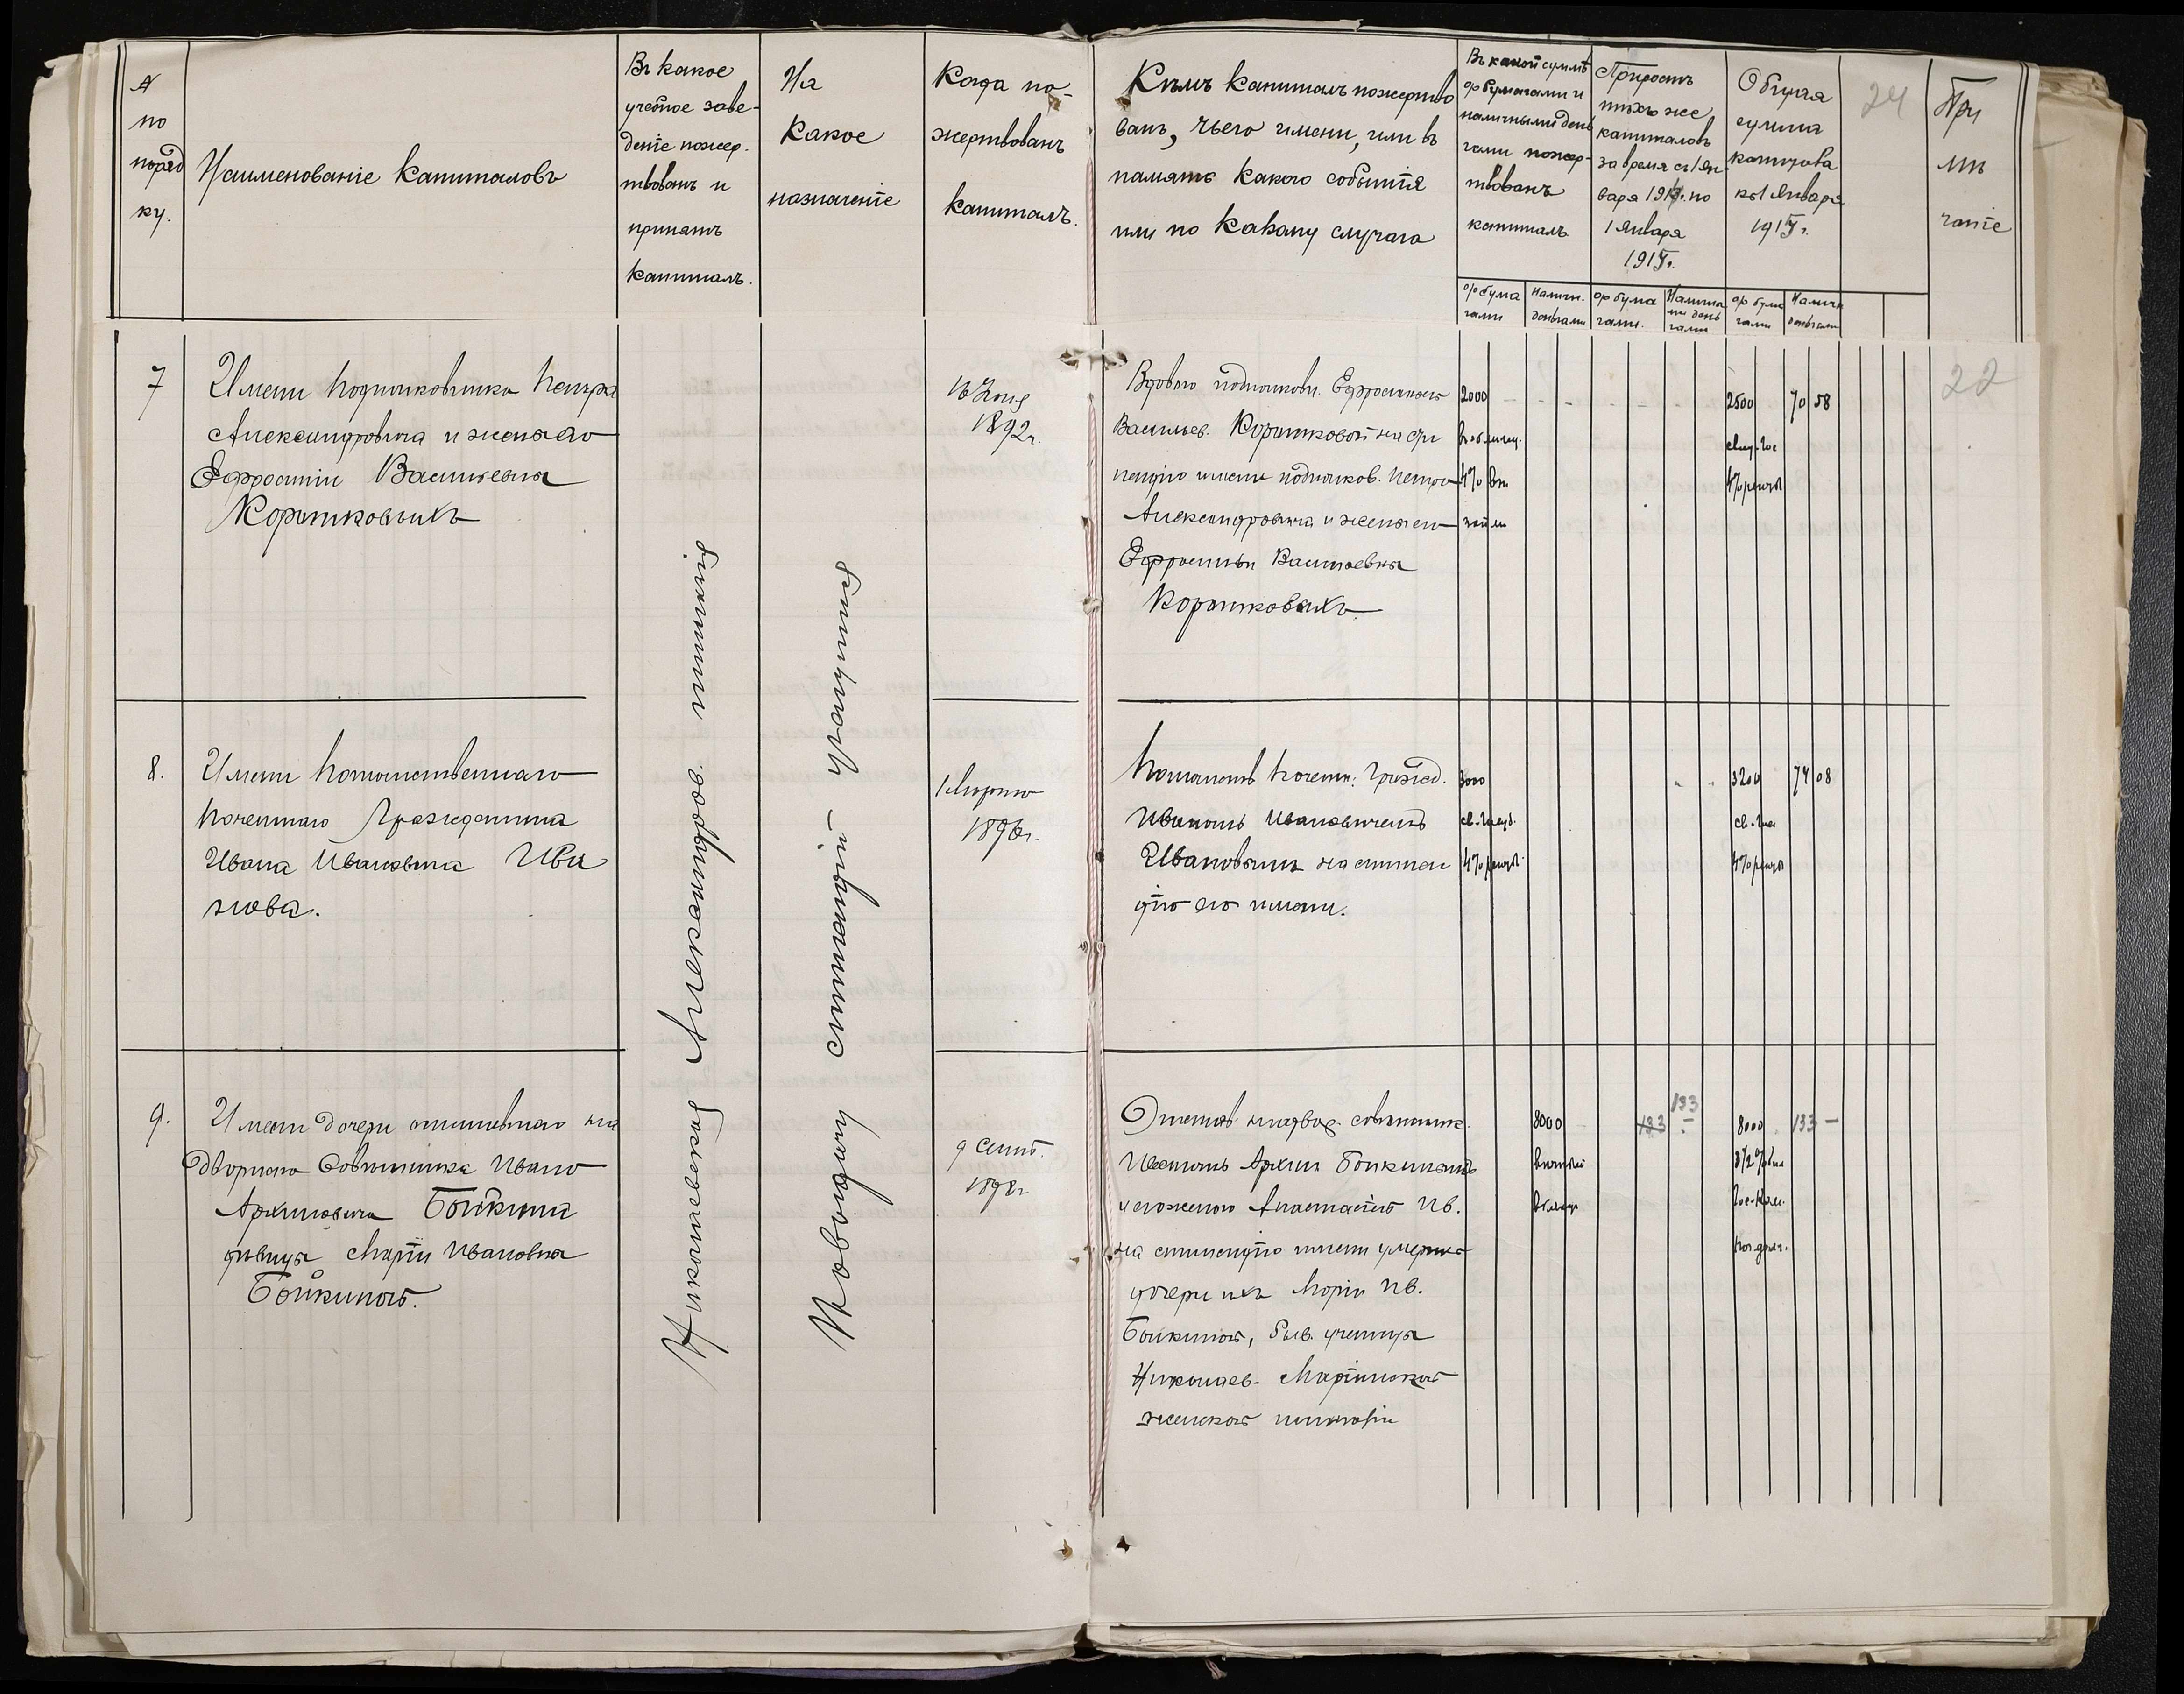 №
по
поряд
ку.
Наименованіе капиталовъ
Въ какое
учебное заве-
деніе пожер-
твованъ и
принятъ
капиталъ.
На
какое
назначеніе
Когда по-
жертвованъ
капиталъ.
Кѣмъ капиталъ пожертво
ванъ, чьего имени, или въ
память какого событія
или по какому случаю
Въ какой суммѣ
% бумагами и
наличными день
гами пожер-
твованъ
капиталъ
Приростъ
тѣхъ же
капиталовъ
за время съ 1 Ян-
варя 191 г. по
1 Января
191 г.
Общая
сумма
капитала
къ 1 Января
191 г.
24
При
мѣ
чаніе
% бума
гами
Налич.
деньгами
% бума
гами.
Налична
ми день
гами
% бума
гами
Наличн
деньгами
7
Имени Подполковника Петра
Александровича и жены его
Ефросиніи Васильевны
Коротковыхъ
1892 г.
Вдовою подполковн. Ефросиніей
Васильев. Коротковой на сти
пендію имени подполков. Петра
Александровича и жены его
Ефросиньи Васильевны
Коротковыхъ.
2000
4% вн
займа
2500
свид. Гос
4% ренты
70 58
22
8.
Имени Потомственнаго
Почетнаго Гражданина
Ивана Ивановича Ива
нова.
1 Марта
1896 г.
Потомств. Почетн. Гражд.
Иваномъ Ивановичемъ
Ивановымъ на стипен
дію его имени.
3000
св. Госуд.
4% ренты
3200
св. Гос
4% ренты
74 08
9.
Имени дочери отставнаго на
дворнаго Совѣтника Ивана
Архиповича Бойкина
дѣвицы Маріи Ивановны
Бойкиной.
9 Сент.
1898 г
Отставн. надвор. совѣтник.
Иваномъ Архип. Бойкинымъ
и его женою Анастасіей Ив.
на стипендію имени умершей
дочери ихъ Маріи Ив.
Бойкиной, быв. ученицы
Николаев. Маріинской
женской гимназіи
8000
133
133
8000
3½ %
133 —
Николаевская Александров. гимназія
Неводящу стипендій учащимся